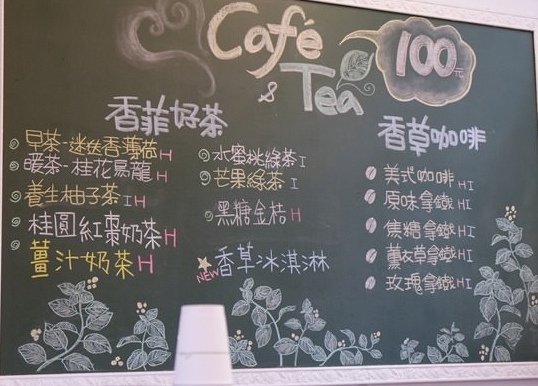 Café
& Tea
100元
香菲好茶
早茶-迷迭香薄荷 H
暖茶-桂花烏龍 H
養生柚子茶 I H
桂圓紅棗奶茶 H
薑汁奶茶 H
水蜜桃綠茶 I
芒果綠茶 I
黑糖金桔 H
NEW 香草冰淇淋
香草咖啡
美式咖啡 H I
原味拿鐵 H I
焦糖拿鐵 H I
薰衣草拿鐵 H I
玫瑰拿鐵 H I